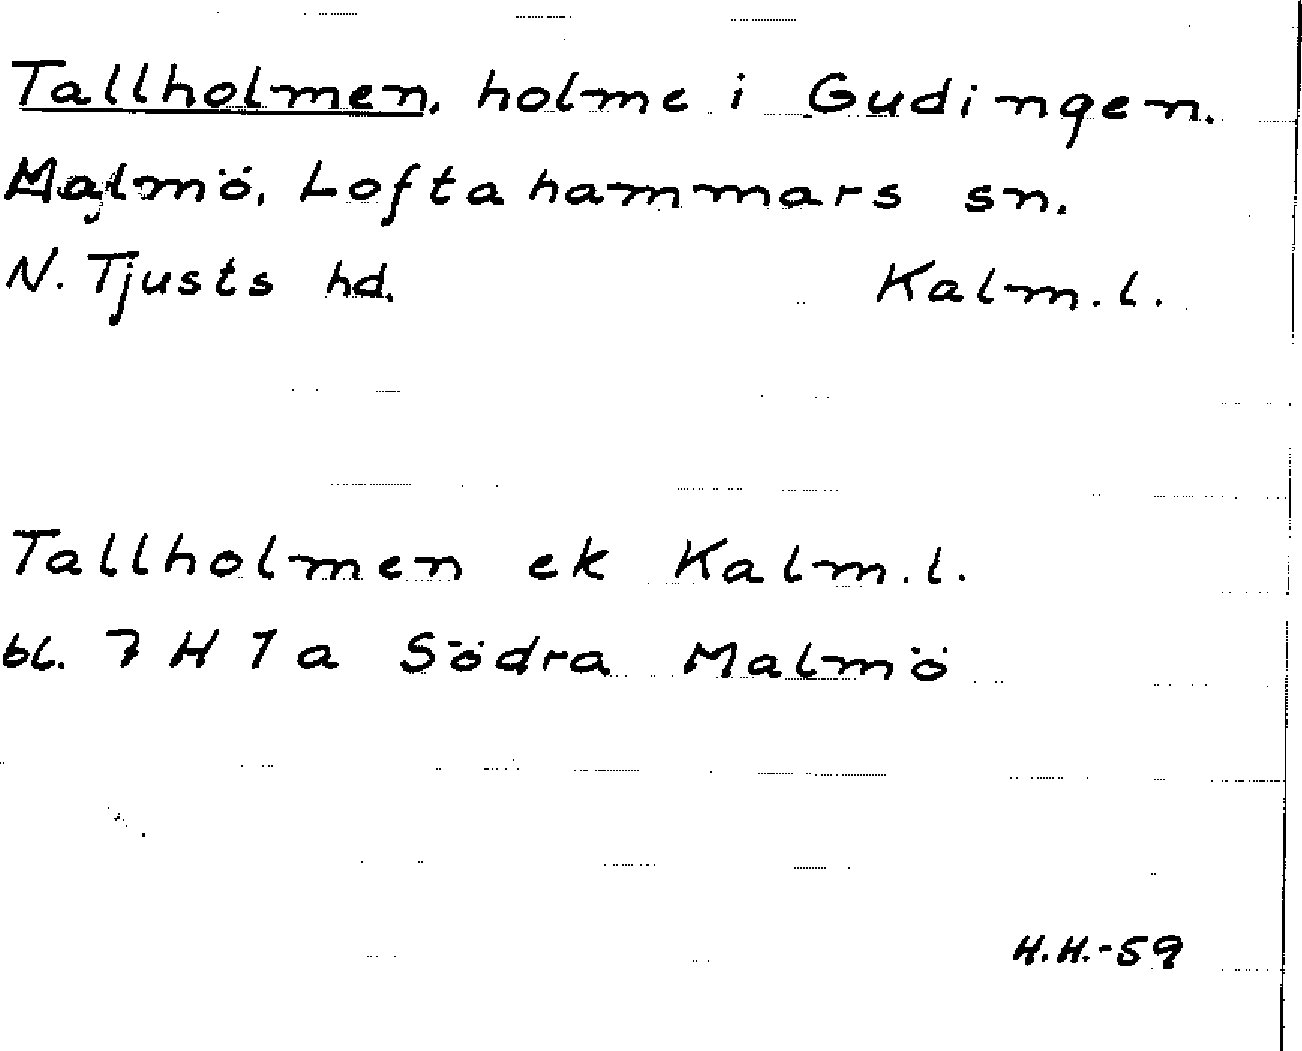 Tallholmen, holme i Gudingen.
Malmö, Loftahammars sn.
N. Tjusts hd. Kalm.l.
Tallholmen ek Kalm.l.
bl. 7 H 7 a Södra Malmö
H.H.-59